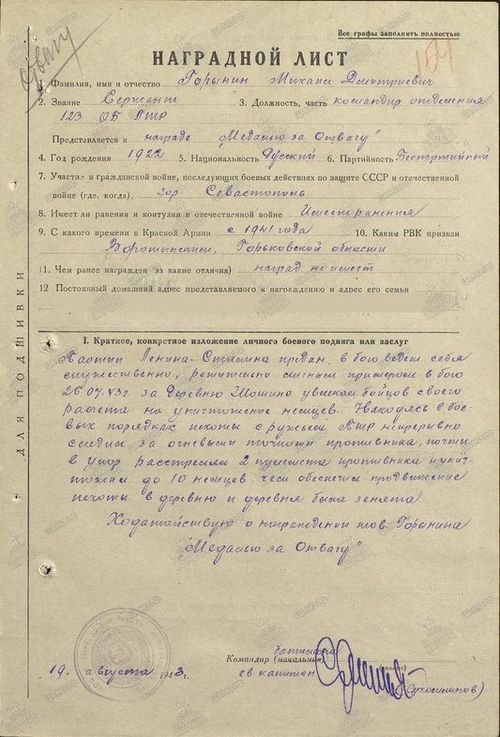 Все графы заполнять полностью
отвагу
154
НАГРАДНОЙ ЛИСТ
1. Фамилия, имя и отчество Горынин Михаил Дмитриевич
2. Звание Сержант 3. Должность, часть командир отделения
123 ОБ ПТР
Представляется к награде "Медалью за Отвагу"
4. Год рождения 1922 5. Национальность Русский 6. Партийность Беспартийный
7. Участие в гражданской войне, последующих боевых действиях по защите СССР и отечественной
войне (где, когда) гор Севастополь
8. Имеет ли ранения и контузии в отечественной войне Имеет ранения
9. С какого времени в Красной Армии с 1941 года 10. Каким РВК призван
Воротынский, Горьковской области
11. Чем ранее награжден (за какие отличия) наград не имеет
12 Постоянный домашний адрес представляемого к награждению и адрес его семьи
ДЛЯ ПОДШИВКИ
I. Краткое, конкретное изложение личного боевого подвига или заслуг
Партии Ленина-Сталина предан, в бою ведет себя
мужественно, решительно личным примером в бою
26.07.43г за деревню Шошино увлекал бойцов своего
расчета на уничтожение немцев. Находясь в бое-
вых порядках пехоты с ружьем ПТР непрерывно
следил за огневыми точками противника, почти
в упор расстрелял 2 пулемета противника и унич-
тожил до 10 немцев, чем обеспечил продвижение
пехоты в деревню и деревня была занята
Ходатайствую о награждении тов. Горынина
"Медалью за Отвагу"
батальона
Командир (начальник)
гв капитан
19. августа 1943.